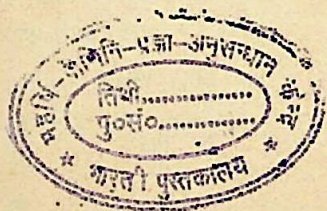 महर्षि-जैमिनि-प्रज्ञा-अनुसन्धान
तिथी..............
पु०सं०..............
* भारती पुस्तकालय *